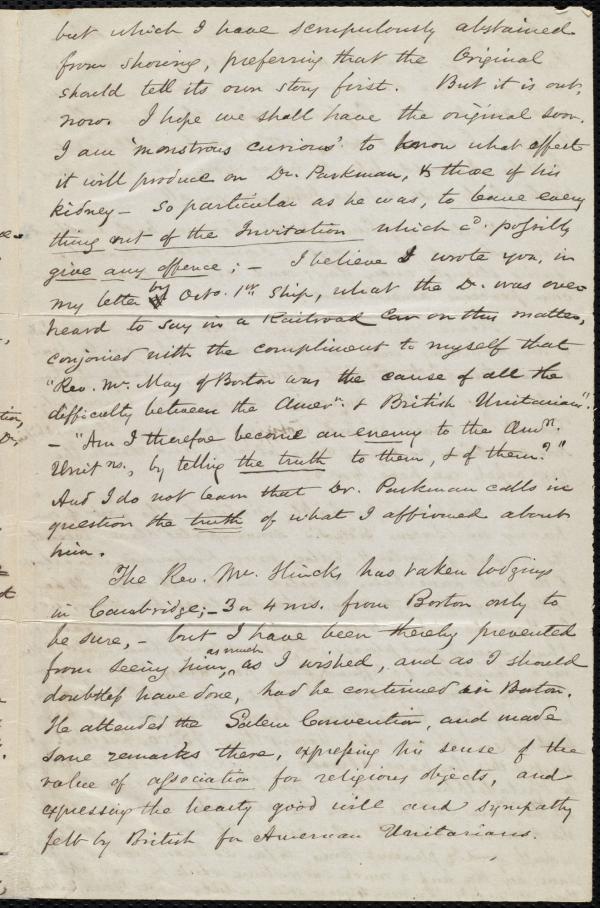 but which I have scrupulously abstained
from showing, preferring that the Original
should tell its own story first. But it is out,
now. I hope we shall have the original soon.
I am 'monstrous curious' to know what effect
it will produce on Dr. Parkman, & those of his
kidney — so particular as he was, to leave every
thing out of the Invitation which cd. possibly
give any offence; — I believe I wrote you, in
my letter by Octo. 1st Ship, what the D. was over-
heard to say in a Railroad Car on this matter,
conjoined with the compliment to myself that
"Rev. Mr. May of Boston was the cause of all the
difficulty between the Amern. & British Unitarians".
— "Am I therefore become an enemy to the Amn.
Unitns., by telling the truth to them, & of them?"
And I do not learn that Dr. Parkman calls in
question the truth of what I affirmed about
him.
The Rev. Mr. Hincks has taken lodgings
in Cambridge; — 3 or 4 ms. from Boston only to
be sure, — but I have been thereby prevented
from seeing him, as much as I wished, and as I should
doubtless have done, had he continued in Boston.
He attended the Salem Convention, and made
some remarks there, expressing his sense of the
value of association for religious objects, and
expressing the hearty good will and sympathy
felt by British for American Unitarians.